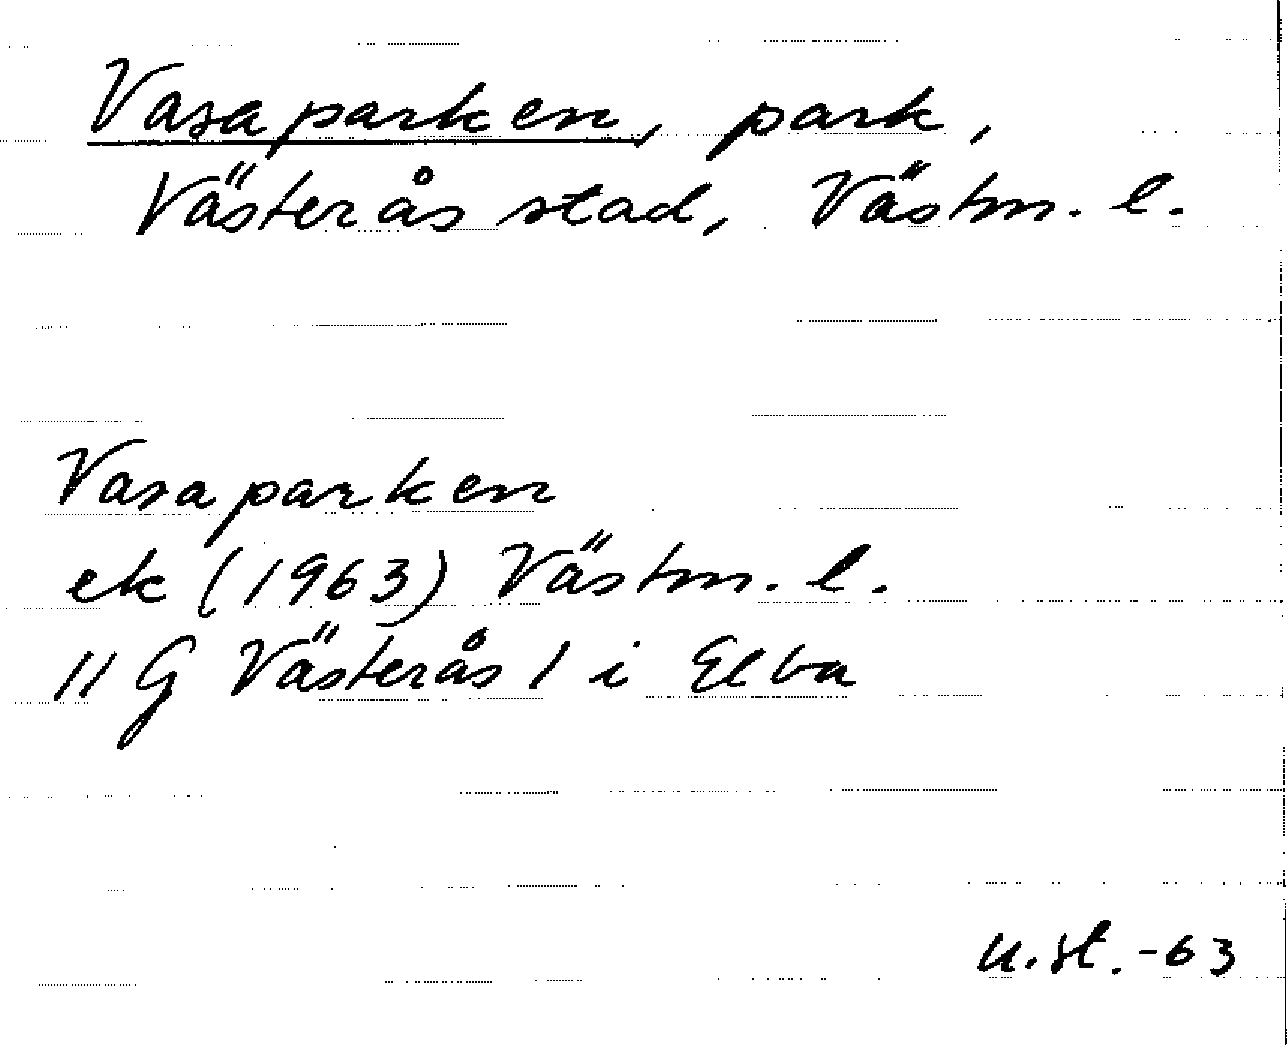 Vasaparken, park,
Västerås stad, Västm. l.
Vasaparken
ek (1963) Västm. l.
11 G Västerås 1 i Elba
U. St. -63